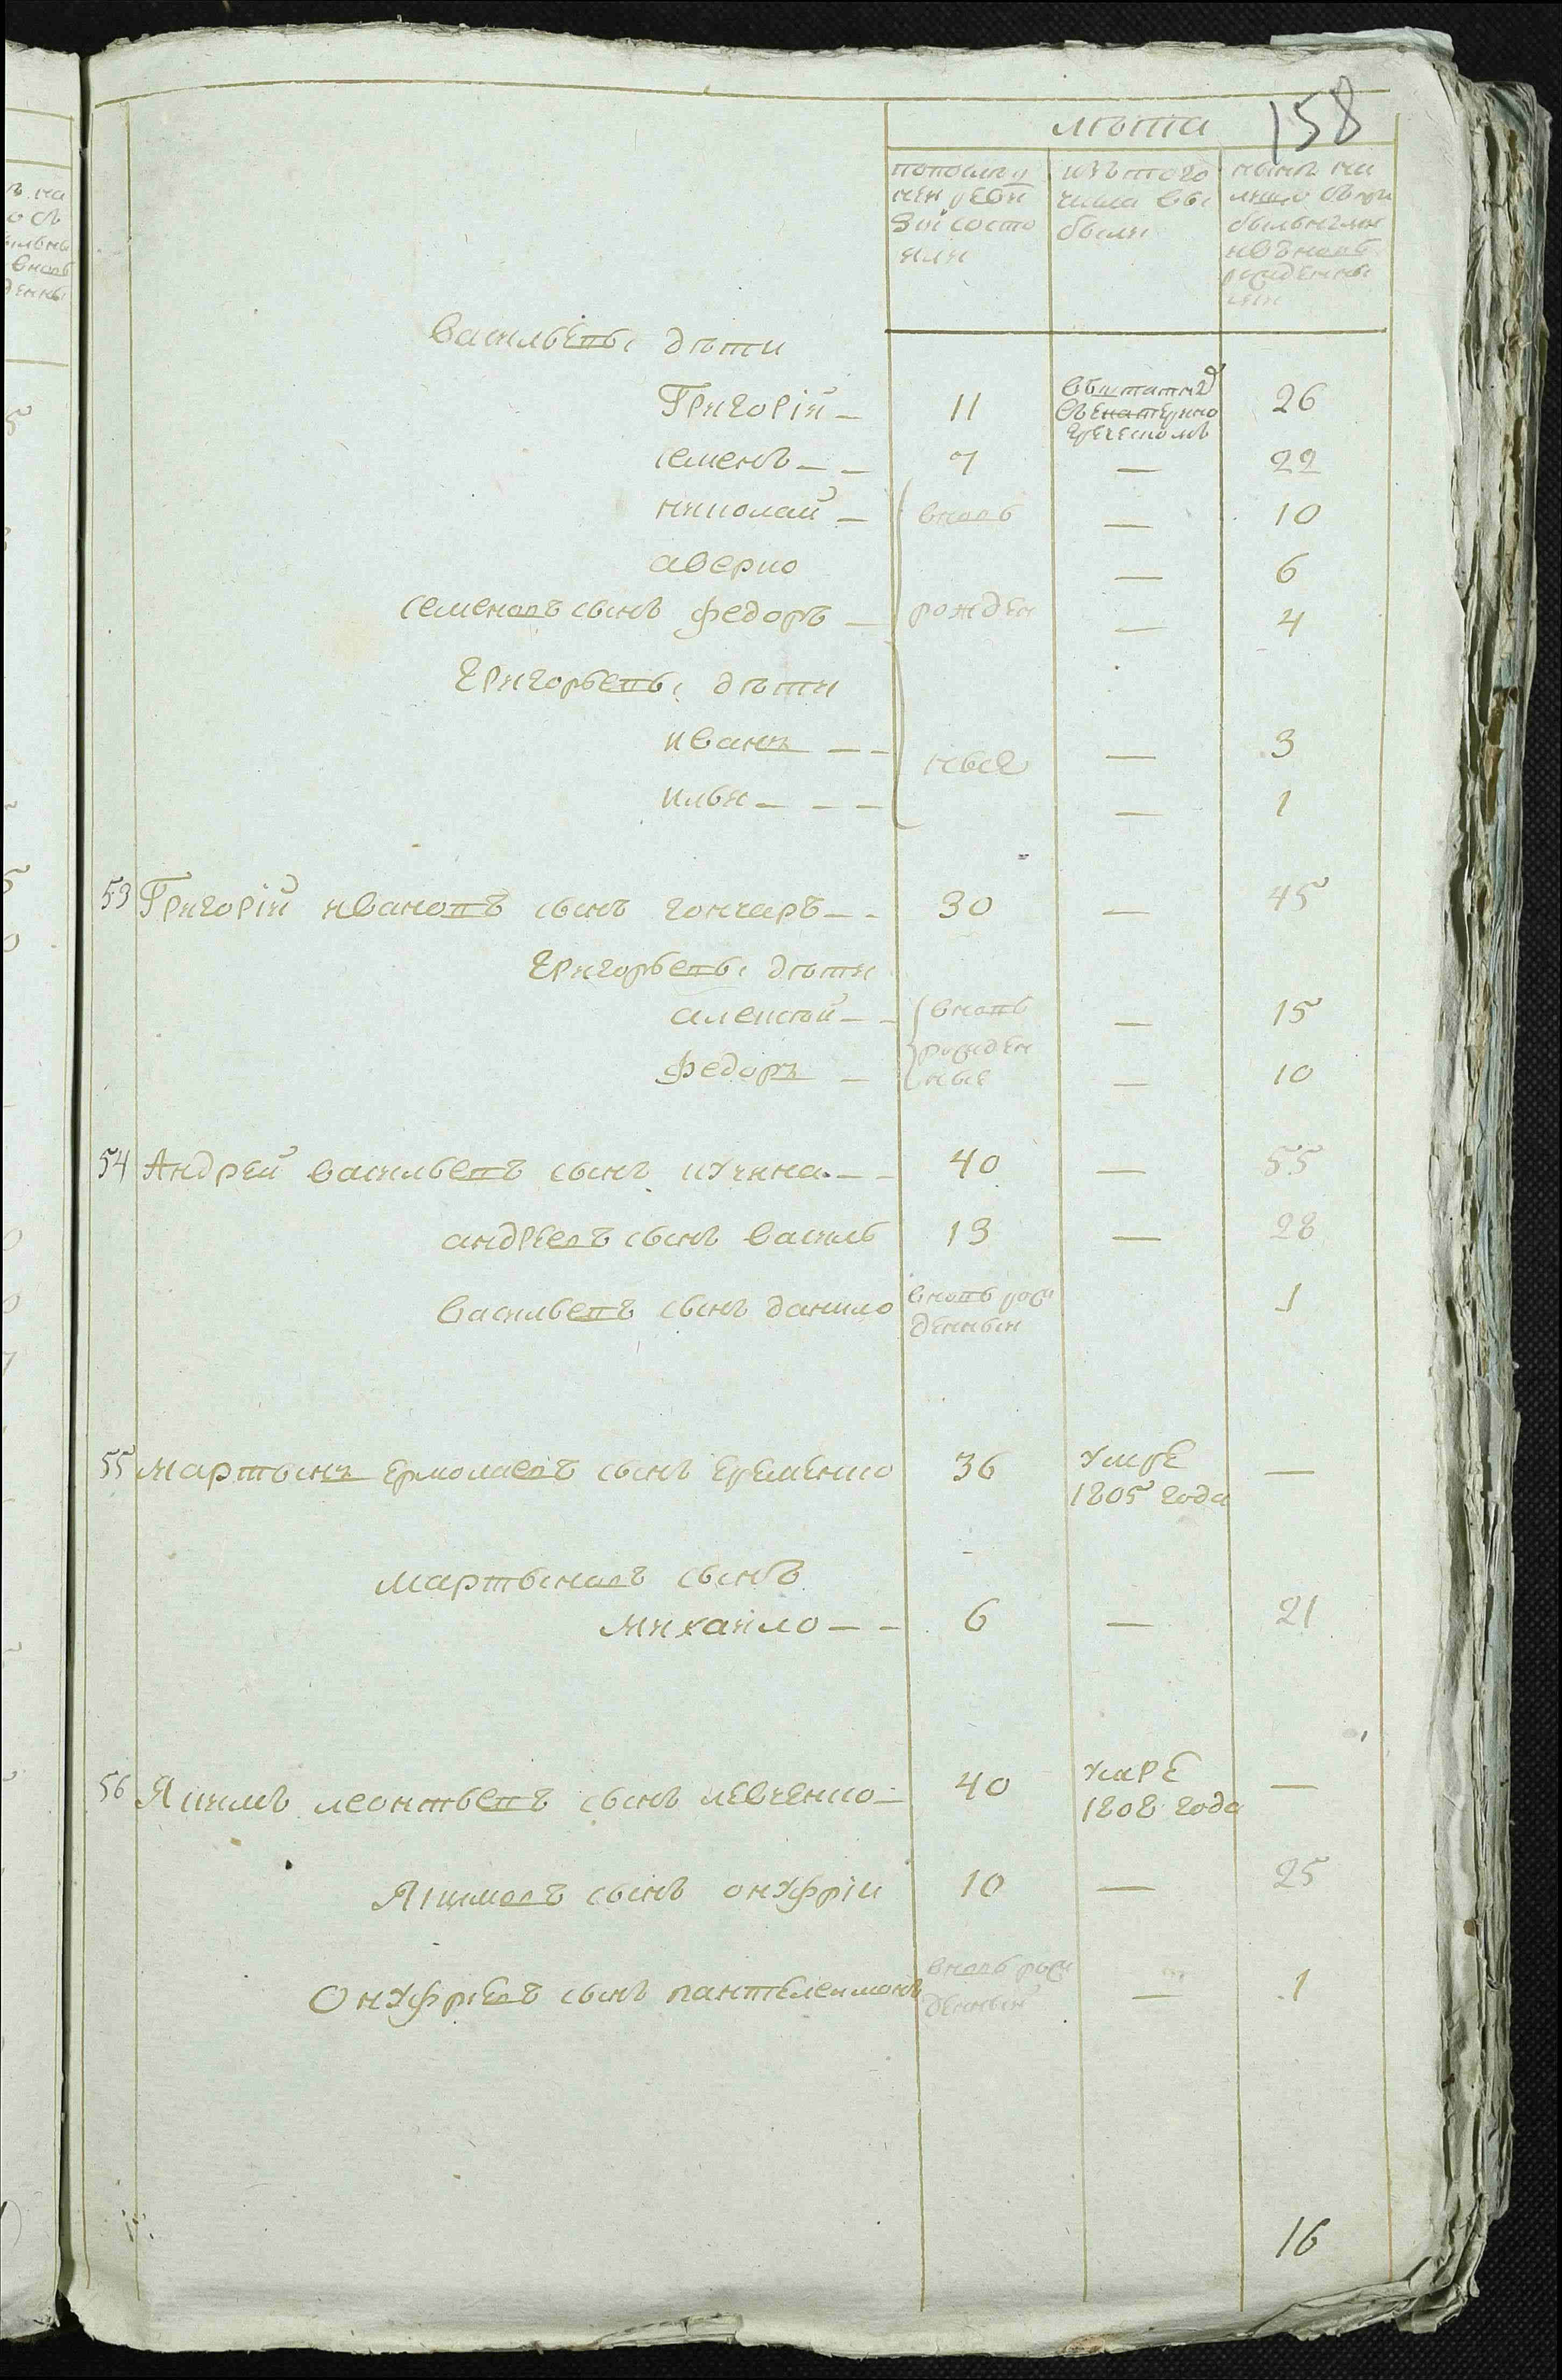 158
лѣта
по последней ревизіи состояли
изъ того числа выбыли
нынѣ на лицо съ прибылыми и вновь рожденными
Васильевы дѣти
Григорій — 11 26
семенъ — — 7 — 22
николай — вновь — 10
аверко — 6
семеновъ сынъ федоръ — рожден — 4
Григорьевы дѣти
иванъ — — ные — 3
илья — — — — 1
53 Григорій ивановъ сынъ гончаръ — - 30 — 45
Григорьевы дѣти
алексѣй — - вновь — 15
рожден
федоръ — ные — 10
54 Андрей васильевъ сынъ кучина — - 40 — 55
андреевъ сынъ василь 13 — 28
васильевъ сынъ данило вновь рож 1
денныи
55 мартынъ ермолаевъ сынъ еременко 36 умре —
1805 года
мартыновъ сынъ
михаило — - 6 — 21
56 Якимъ леонтьевъ сынъ левченко - 40 умре —
1808 года
Якимовъ сынъ онуфріи 10 — 25
Онуфріевъ сынъ пантелеимонъ вновь рож — 1
денный
16